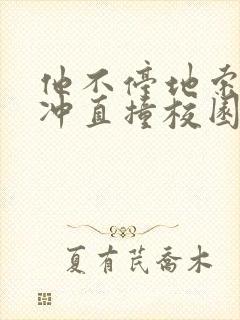 他不停地索
冲直撞校园
夏有芪乔木